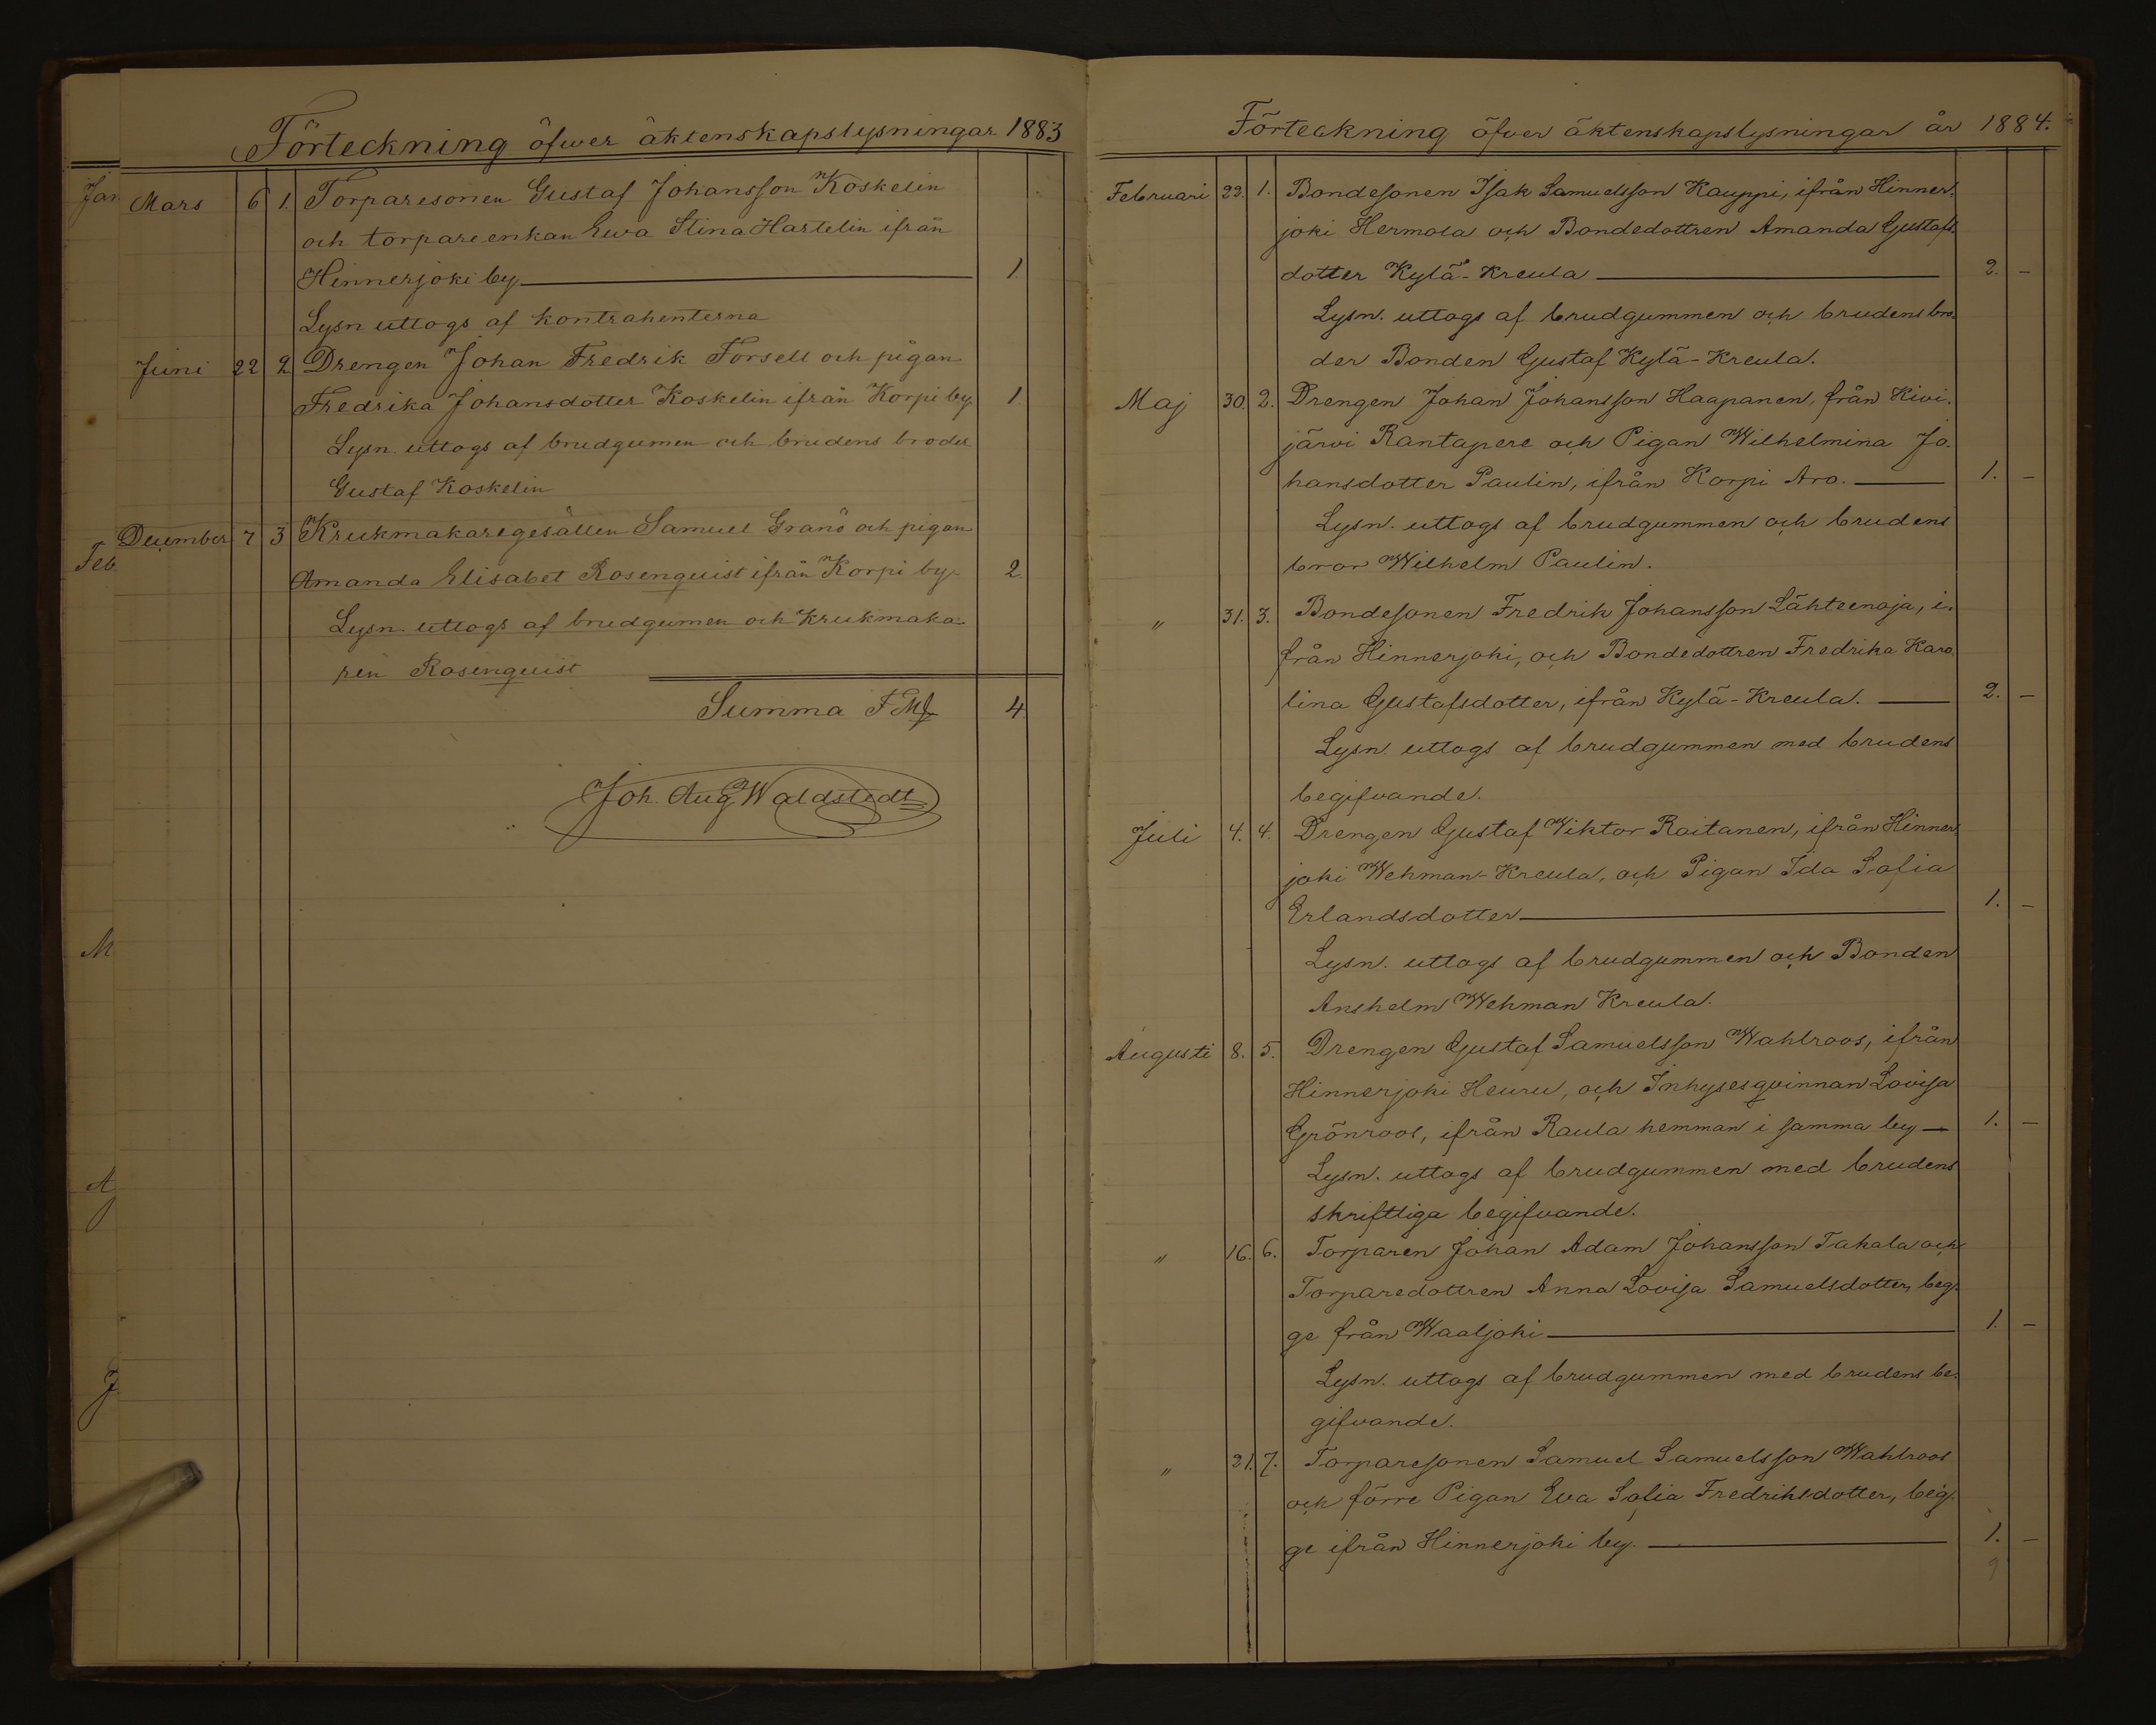 Förteckning öfwer äktenskapslysningar 1883
Mars 6 1. Torparesonen Gustaf Johansson Koskelin
och torpareenkan Ewa Stina Hartelin ifrån
Hinnerjoki by 1.
Lysn uttogs af kontrahenterna
Juni 22 2 Drengen Johan Fredrik Forsell och pigan
Fredrika Johansdotter Koskelin ifrån Korpi by 1
Lysn. uttogs af brudgumen och brudens broder
Gustaf Koskelin
December 7 3 Krukmakaregesällen Samuel Granö och pigan
Amanda Elisabet Rosenquist ifrån Korpi by. 2.
Lysn uttogs af brudgumen och Krukmaka-
ren Rosenquist
Summa FMk 4.
Joh. Aug Waldstedt
Jan
Feb
M
A
J
Förteckning öfver äktenskapslysningar år 1884.
Februari 22. 1. Bondesonen Isak Samuelsson Kauppi, ifrån Hinner-
joki Hermola och Bondedottren Amanda Gustafs-
dotter Kylä-Kreula 2. –
Lysn. uttogs af brudgummen och brudens bro-
der Bonden Gustaf Kylä-Kreula.
Maj 30. 2. Drengen Johan Johansson Haapanen, från Kivi-
järvi Rantapere och Pigan Wilhelmina Jo-
hansdotter Paulin, ifrån Korpi Aro. 1. –
Lysn. uttogs af brudgummen och brudens
bror Wilhelm Paulin.
" 31. 3. Bondesonen Fredrik Johansson Lähteenoja, i-
från Hinnerjoki, och Bondedottren Fredrika Karo-
lina Gustafsdotter, ifrån Kylä-Kreula. 2. –
Lysn. uttogs af brudgummen med brudens
begifvande.
Juli 4. 4. Drengen Gustaf Wiktor Raitanen, ifrån Hinner-
joki Wehman-Kreula, och Pigan Ida Sofia
Erlandsdotter 1. –
Lysn. uttogs af brudgummen och Bonden
Anshelm Wehman Kreula.
Augusti 8. 5. Drengen Gustaf Samuelsson Wahlroos, ifrån
Hinnerjoki Heuru, och Inhysesqvinnan Lovisa
Grönroos, ifrån Raula hemman i samma by 1. –
Lysn. uttogs af brudgummen med brudens
skriftliga begifvande.
" 16. 6. Torparen Johan Adam Johansson Takala och
Torparedottren Anna Lovisa Samuelsdotter, beg-
ge från Waaljoki 1. –
Lysn. uttogs af brudgummen med brudens be-
gifvande.
" 21. 7. Torparesonen Samuel Samuelsson Wahlroos
och förre Pigan Eva Sofia Fredriksdotter, beg-
ge ifrån Hinnerjoki by. 1. –
9